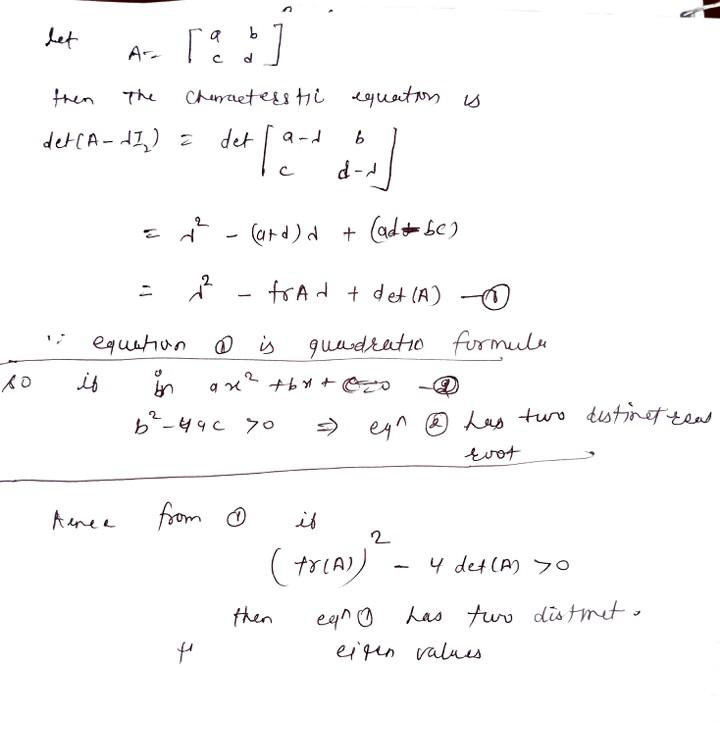 Let A = [ a b
c d ]
then The characteristic equation is
det(A-λI₂) = det [ a-λ b
c d-λ ]
= λ² - (a+d)λ + (ad - bc)
= λ² - trA λ + det(A) —①
∵ equation ① is quadratic formula
so if in ax² + bx + c = 0 —②
b² - 4ac > 0 ⇒ eqⁿ ② has two distinct real
root
Hence from ① if
(tr(A))² - 4 det(A) > 0
then eqⁿ ① has two distinct.
eigen values